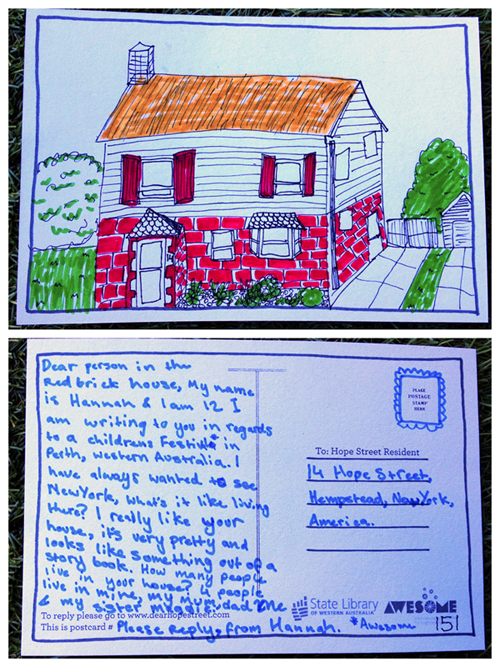 Dear person in the
Red brick house, My name
is Hannah & I am 12 I
am writing to you in regards
to a childrens Festival in
Perth, Western Australia. I
have always wanted to see
NewYork, what's it like living
there? I really like your
house, it's very pretty and
looks like something out of a
story book. How many people
live in your house? 4 people
live in mine, my Mum, dad Me
& my sister Maggie.
To reply please go to www.dearhopestreet.com
This is postcard # Please Reply, From Hannah. #Awesome
PLACE
POSTAGE
STAMP
HERE
To: Hope Street Resident
14 Hope Street,
Hempstead, NewYork,
America.
State Library
OF WESTERN AUSTRALIA
AWESOME
151